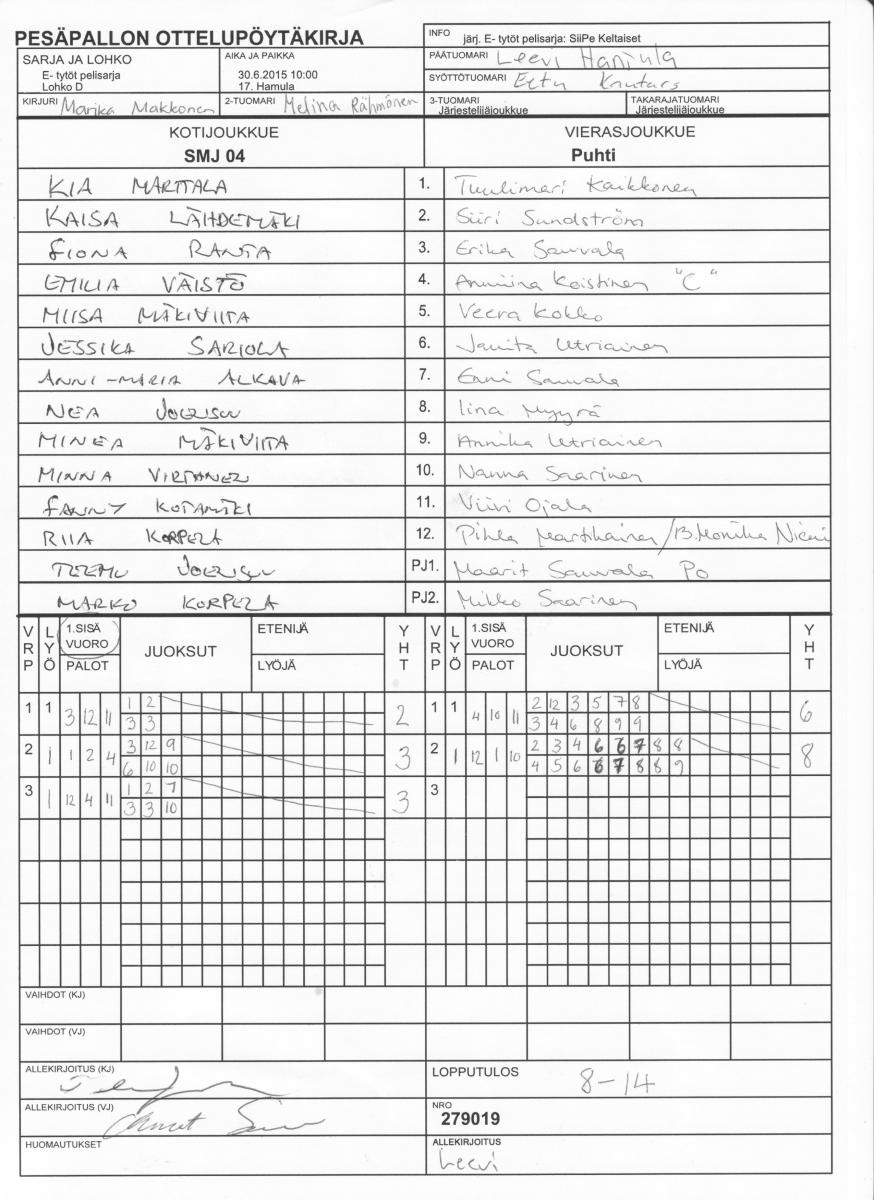 PESÄPALLON OTTELUPÖYTÄKIRJA
INFO järj. E- tytöt pelisarja: SiiPe Keltaiset
SARJA JA LOHKO
E- tytöt pelisarja
Lohko D
AIKA JA PAIKKA
30.6.2015 10:00
17. Hamula
PÄÄTUOMARI Leevi
SYÖTTÖTUOMARI
KIRJURI Marika Makkonen
2-TUOMARI Melina Rähmönen
3-TUOMARI
Järjestelijäjoukkue
TAKARAJATUOMARI
Järjestelijäjoukkue
KOTIJOUKKUE
SMJ 04
VIERASJOUKKUE
Puhti
KIA MARTTALA 1. Tuulimari Kaikkonen
KAISA LÄHDEMÄKI 2. Siiri Sundström
FIONA RANTA 3. Erika Sauvala
EMILIA VÄISTÖ 4. Anniina Koistinen "C"
MIISA MÄKIVIITA 5. Veera Kokko
JESSIKA SARIOLA 6. Janita Utriainen
ANNI-MARIA ALKAVA 7. Enni Sauvala
NEA JOENSUU 8. Iina Myyrä
MINEA MÄKIVIITA 9. Annika Utriainen
MINNA VIRTANEN 10. Nanna Saarinen
FANNY KOTAMÄKI 11. Viivi Ojala
RIIA KORPELA 12. Pihla Martikainen/13. Monika Niemi
TEEMU JOENSUU PJ1. Maarit Sauvala PO
MARKO KORPELA PJ2. Mikko Saarinen
VRP LYÖ 1.SISÄ VUORO PALOT JUOKSUT ETENIJÄ LYÖJÄ YHT VRP LYÖ 1.SISÄ VUORO PALOT JUOKSUT ETENIJÄ LYÖJÄ YHT
1 1 3 12 11 1 2 2 1 1 4 10 11 2 12 3 5 7 8 6
3 3 3 4 6 8 9 9
2 1 1 2 4 3 12 9 3 2 1 12 1 10 2 3 4 6 6 7 8 8 8
6 10 10 4 5 6 6 7 8 8 9
3 1 12 4 11 1 2 7 3 3
3 3 10
VAIHDOT (KJ)
VAIHDOT (VJ)
ALLEKIRJOITUS (KJ)
LOPPUTULOS 8-14
ALLEKIRJOITUS (VJ)
NRO
279019
HUOMAUTUKSET
ALLEKIRJOITUS
Leevi